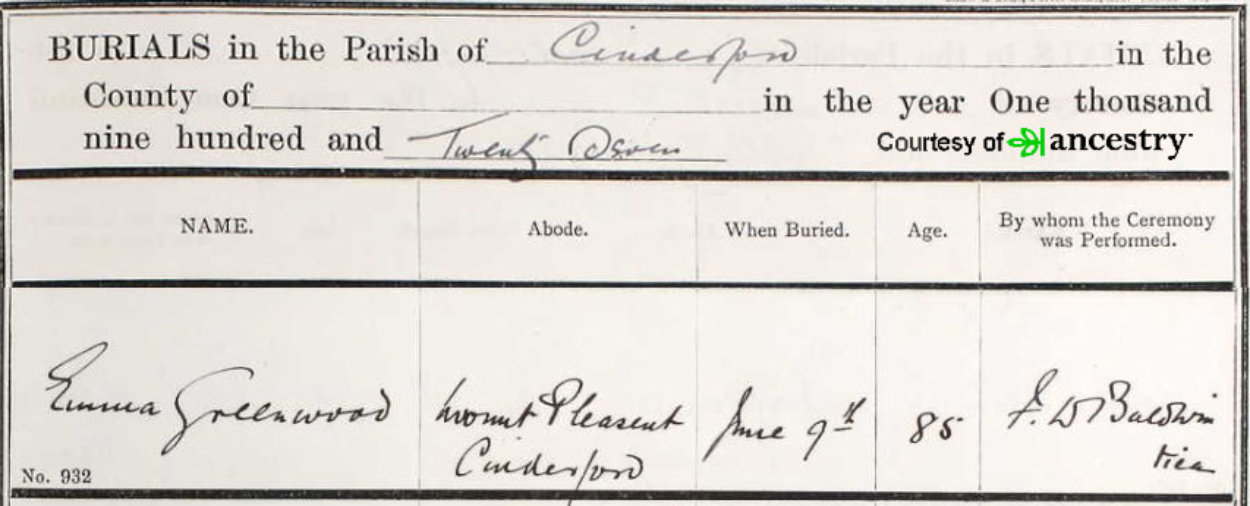 BURIALS in the Parish of Cinderford in the
County of in the year One thousand
nine hundred and Twenty Seven
Courtesy of ancestry
NAME. Abode. When Buried. Age. By whom the Ceremony was Performed.
Emma Greenwood Mount Pleasent June 9th 85 F. D. Baldwin
Cinderford
No. 932